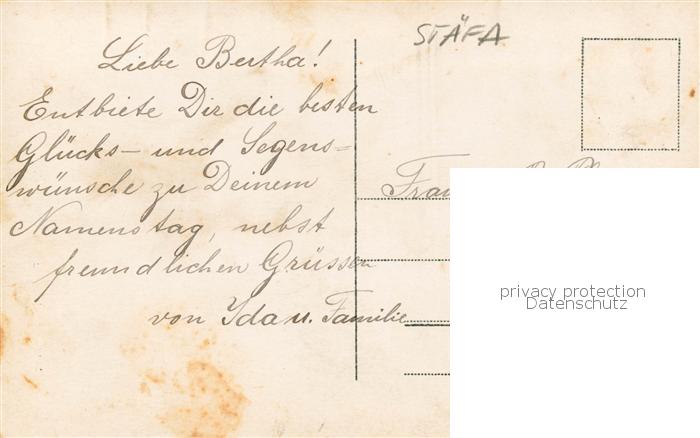 STÄFA
Liebe Bertha!
Entbiete Dir die besten
Glücks- und Segens=
wünsche zu Deinem
Namenstag, nebst
freundlichen Grüssen
von Yda u. Familie
privacy protection
Datenschutz